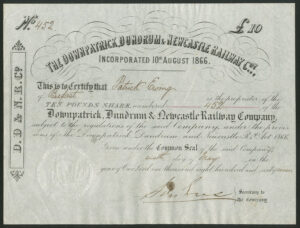 No. 452
£10
THE DOWNPATRICK, DUNDRUM & NEWCASTLE RAILWAY Coy.
INCORPORATED 10th AUGUST 1866.
D. D & N. R. Co.
This is to Certify that Patrick Ewing
of Belfast is the proprietor of the
TEN POUNDS SHARE numbered 452 of the
Downpatrick, Dundrum & Newcastle Railway Company,
subject to the regulations of the said Company, under the provi-
sions of the Downpatrick Dundrum and Newcastle Railway Act 1866.
Given under the Common Seal of the said Company
day of May
year of our Lord one thousand eight hundred and sixty
Secretary to
the Company